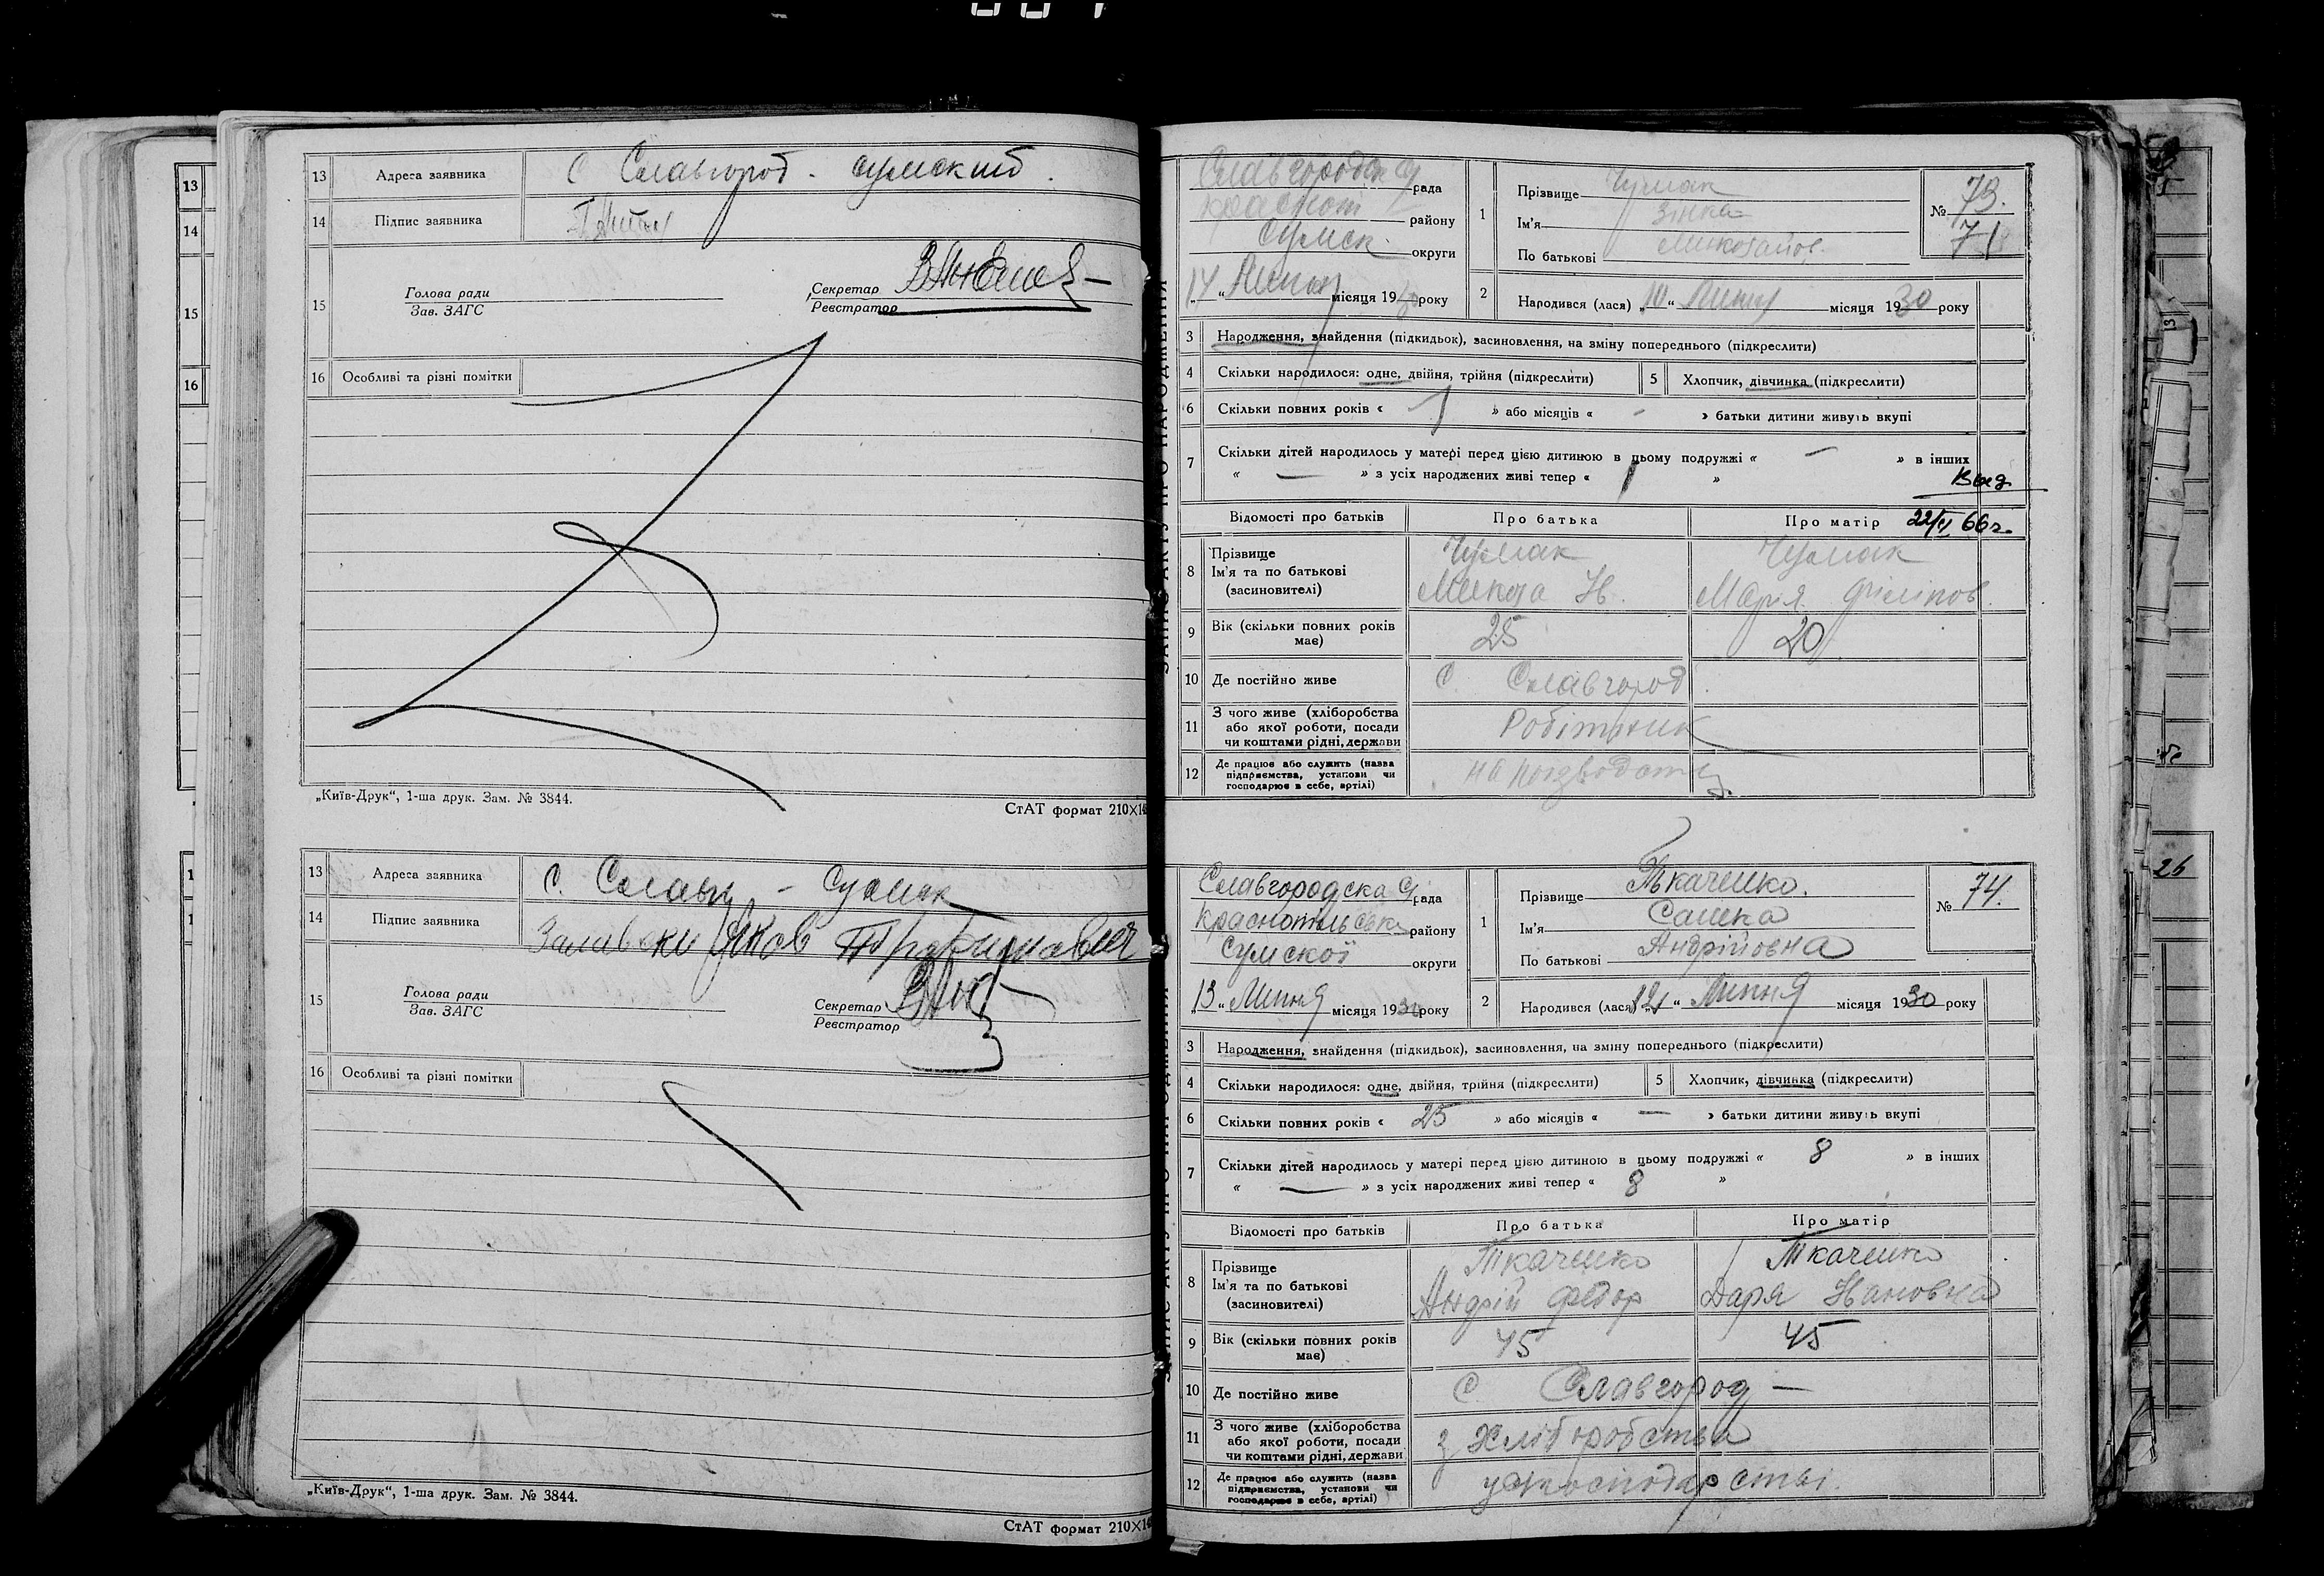 13 Адреса заявника С Славгород - сумский.
14 Підпис заявника
15 Голова ради
Зав. ЗАГС
Секретар
Реєстратор
16 Особливі та різні помітки
„Київ-Друк“, 1-ша друк. Зам. № 3844.
СтАТ формат 210×14
13 Адреса заявника С. Славг - Сумск
14 Підпис заявника
15 Голова ради
Зав. ЗАГС
Секретар
Реєстратор
16 Особливі та різні помітки
„Київ-Друк“, 1-ша друк. Зам. № 3844.
СтАТ формат 210×14
рада
району
Сумск. округи
„14“ Липня місяця 1930 року
1 Прізвище Чумак
Ім'я Зінка
По батькові Миколайов.
№ 73.
71
2 Народився (лася) „10“ Липня місяця 1930 року
3 Народження, знайдення (підкидьок), засиновлення, на зміну попереднього (підкреслити)
4 Скільки народилося: одне, двійня, трійня (підкреслити)
5 Хлопчик, дівчинка (підкреслити)
6 Скільки повних років « 1 » або місяців « - » батьки дитини живуть вкупі
7 Скільки дітей народилось у матері перед цією дитиною в цьому подружжі « — » в інших
« — » з усіх народжених живі тепер « 1 »
Выд
22/VI 66 г.
Відомості про батьків Про батька Про матір
8 Прізвище
Ім'я та по батькові
(засиновителі)
Чумак
Микола Ив.
Чумак
Мария Філіпов.
9 Вік (скільки повних років має) 25 20
10 Де постійно живе С. Славгород
11 З чого живе (хліборобства
або якої роботи, посади
чи коштами рідні, держави
Робітник
12 Де працює або служить (назва
підприємства, установи чи
господарює в себе, артілі)
Славгородска С/ рада
району
Сумскої округи
„13“ Липня місяця 1930 року
1 Прізвище Ткаченко.
Ім'я Сашка
По батькові Андрійовна
№ 74.
2 Народився (лася) „12“ Липня місяця 1930 року
3 Народження, знайдення (підкидьок), засиновлення, на зміну попереднього (підкреслити)
4 Скільки народилося: одне, двійня, трійня (підкреслити)
5 Хлопчик, дівчинка (підкреслити)
6 Скільки повних років « 25 » або місяців « — » батьки дитини живуть вкупі
7 Скільки дітей народилось у матері перед цією дитиною в цьому подружжі « 8 » в інших
« — » з усіх народжених живі тепер « 8 »
Відомості про батьків Про батька Про матір
8 Прізвище
Ім'я та по батькові
(засиновителі)
Ткаченко
Андрій Федор
Ткаченко
Даря Ивановна
9 Вік (скільки повних років має) 45 45
10 Де постійно живе С. Славгород —
11 З чого живе (хліборобства
або якої роботи, посади
чи коштами рідні, держави
з хліборобства
12 Де працює або служить (назва
підприємства, установи чи
господарює в себе, артілі)
у господарстві.
26